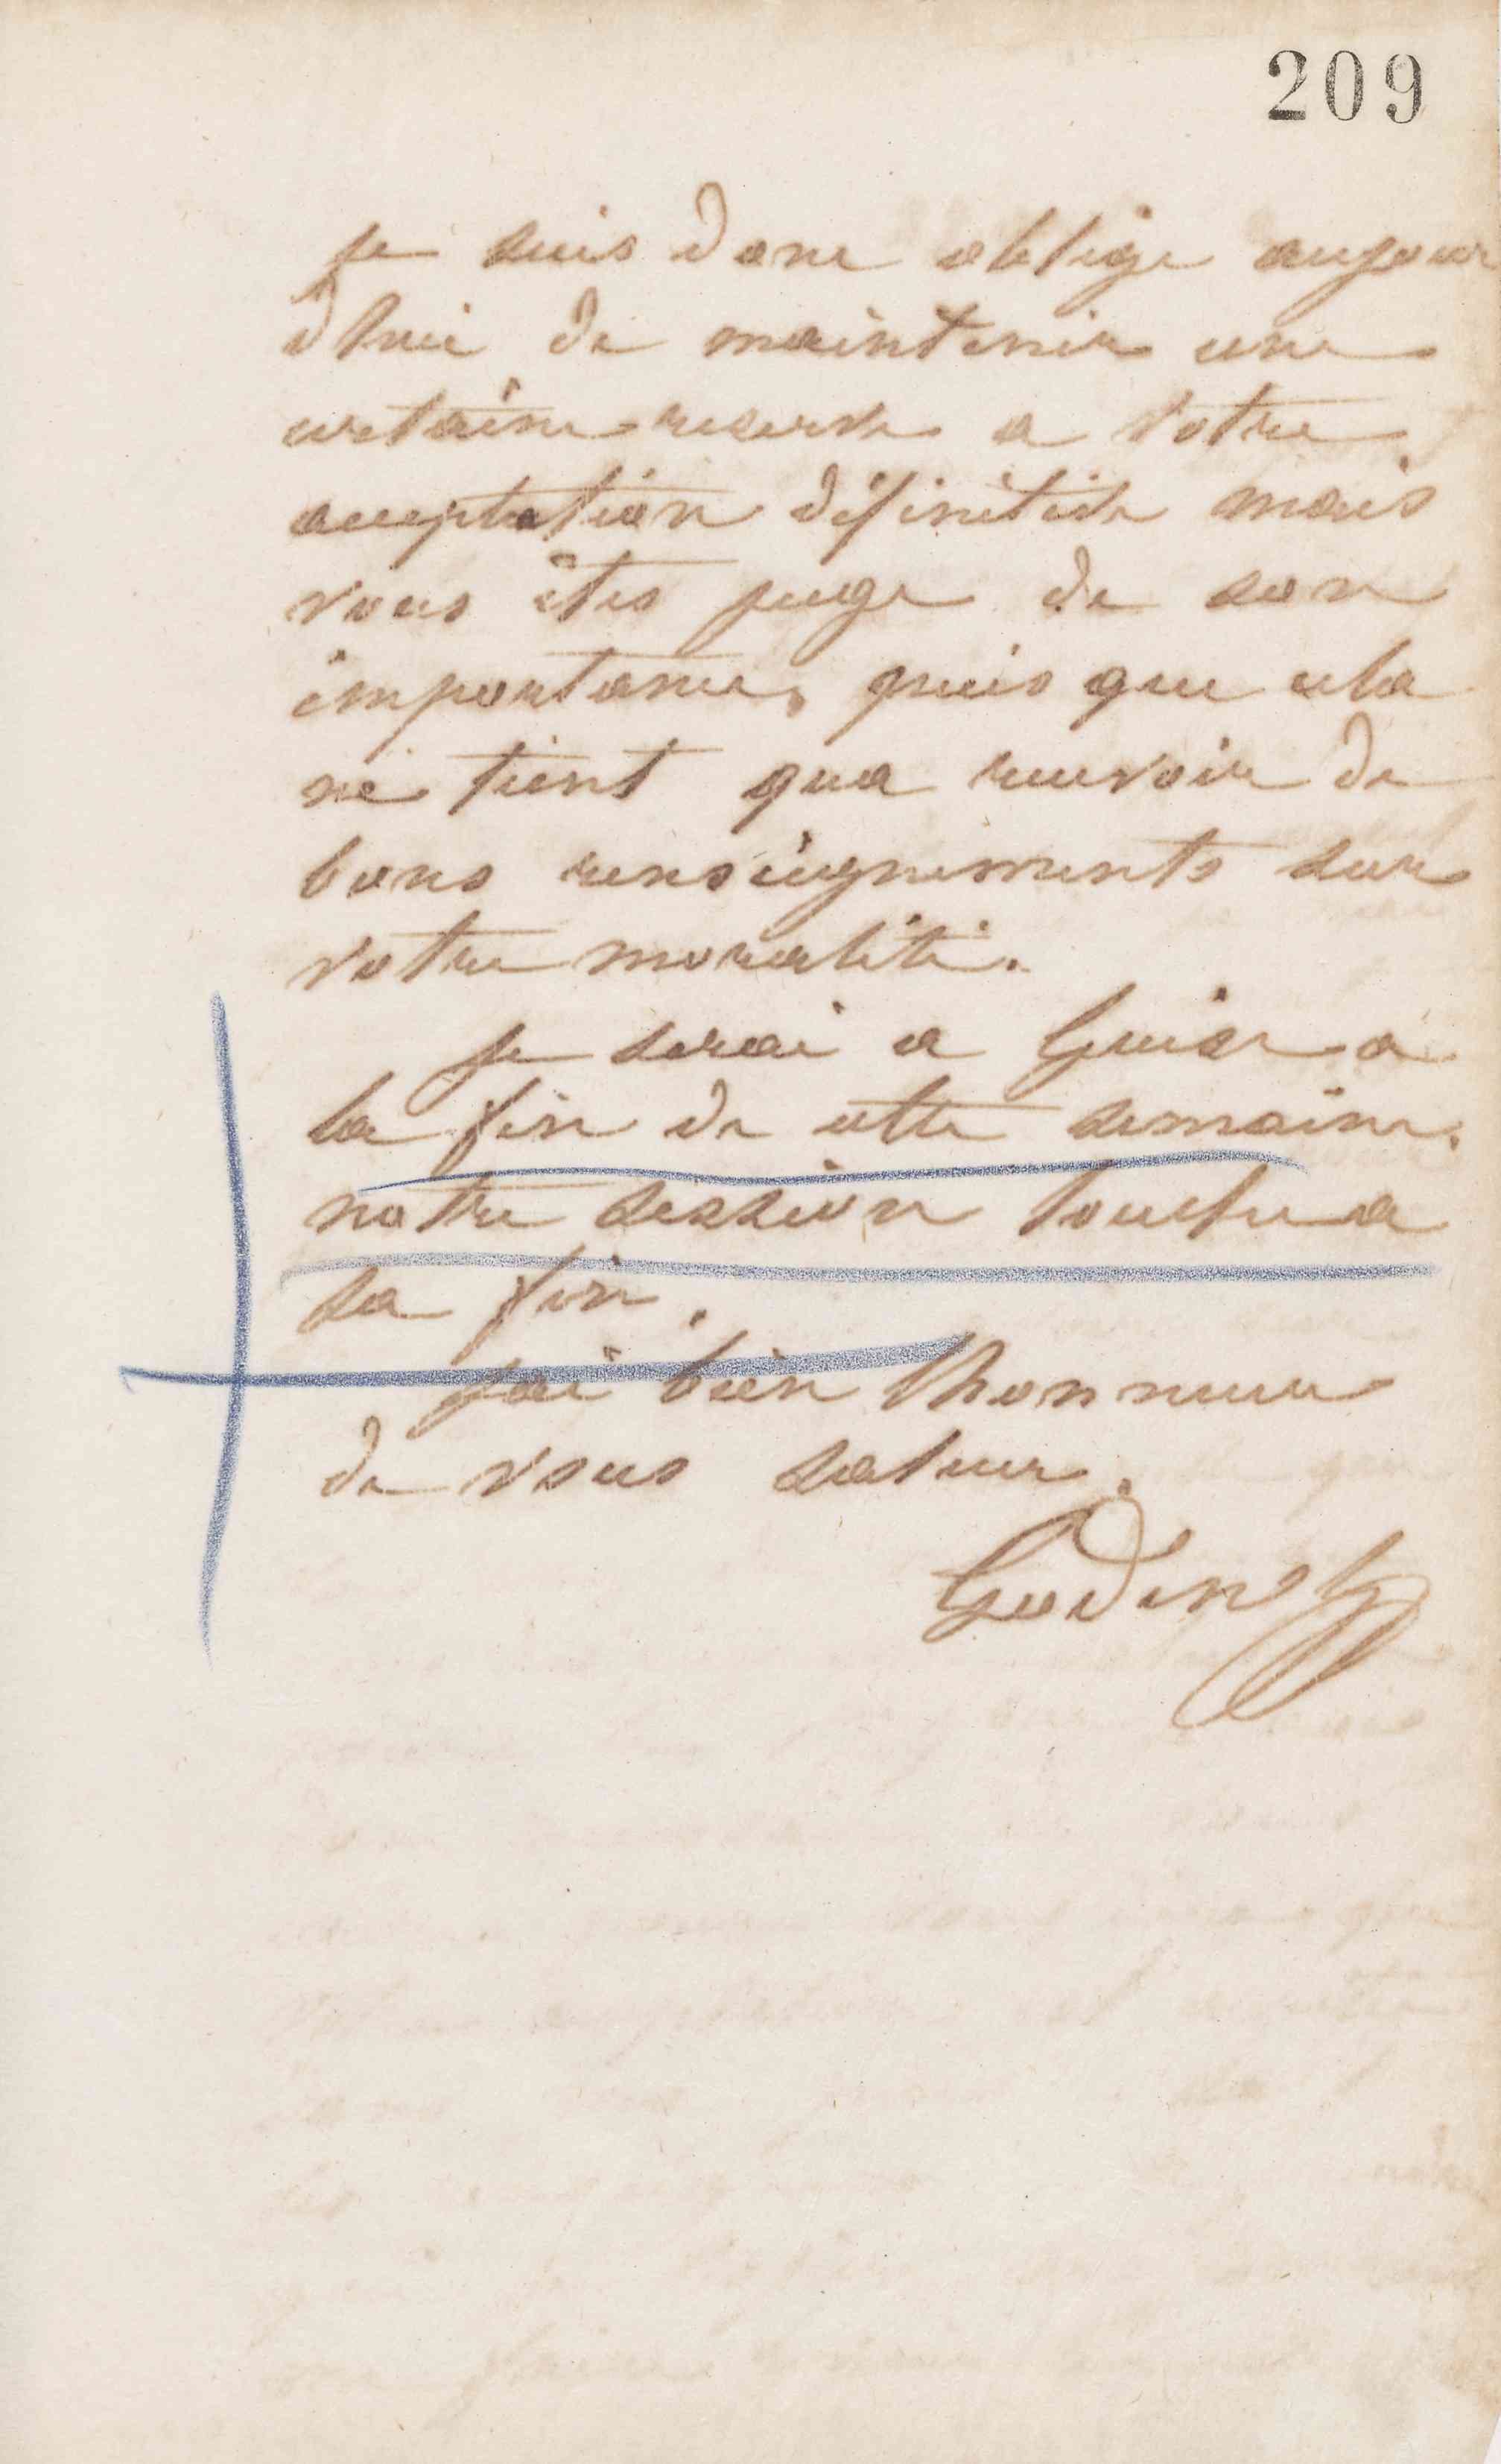 209
je suis donc oblige aujour
dhui de maintenir une
certaine reserve a votre
acceptation définitive mais
vous êtes juge de son
importance, puis que cela
ne tient qua recevoir de
bons renseignements sur
votre moralité.
je serai a Guise a
la fin de cette semaine.
notre session touche a
sa fin.
jai bien lhonneur
de vous saluer.
Godin